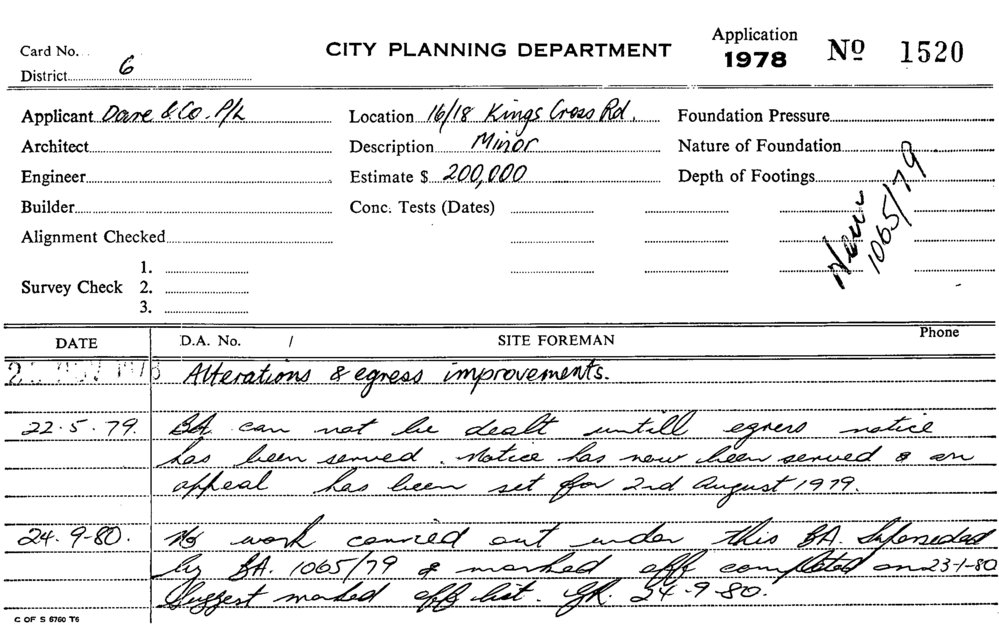 Card No.
District 6
CITY PLANNING DEPARTMENT
Application
1978 No 1520
Applicant Dare & Co. P/L
Architect
Engineer
Builder
Alignment Checked
Survey Check 1.
2.
3.
Location 16/18 Kings Cross Rd.
Description Minor
Estimate $ 200,000
Conc. Tests (Dates)
Foundation Pressure
Nature of Foundation
Depth of Footings
1065/79
DATE D.A. No. / SITE FOREMAN Phone
Alterations & egress improvements.
22.5.79. BA can not be dealt untill egress notice
has been served. Notice has now been served & an
appeal has been set for 2nd August 1979.
24.9-80. No work carried out under this BA. Superseded
by BA. 1065/79 & marked off completed on 23-1-80
Suggest marked off list. 24-9-80.
C OF S 6760 T6